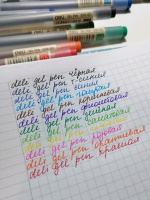 deli gel pen чёрная
deli gel pen т-синяя
deli gel pen синяя
deli gel pen голубая
deli gel pen коричневая
deli gel pen фиолетовая
deli gel pen зелёная
deli gel pen салатовая
deli gel pen
deli gel pen розовая
deli gel pen оранжевая
deli gel pen красная